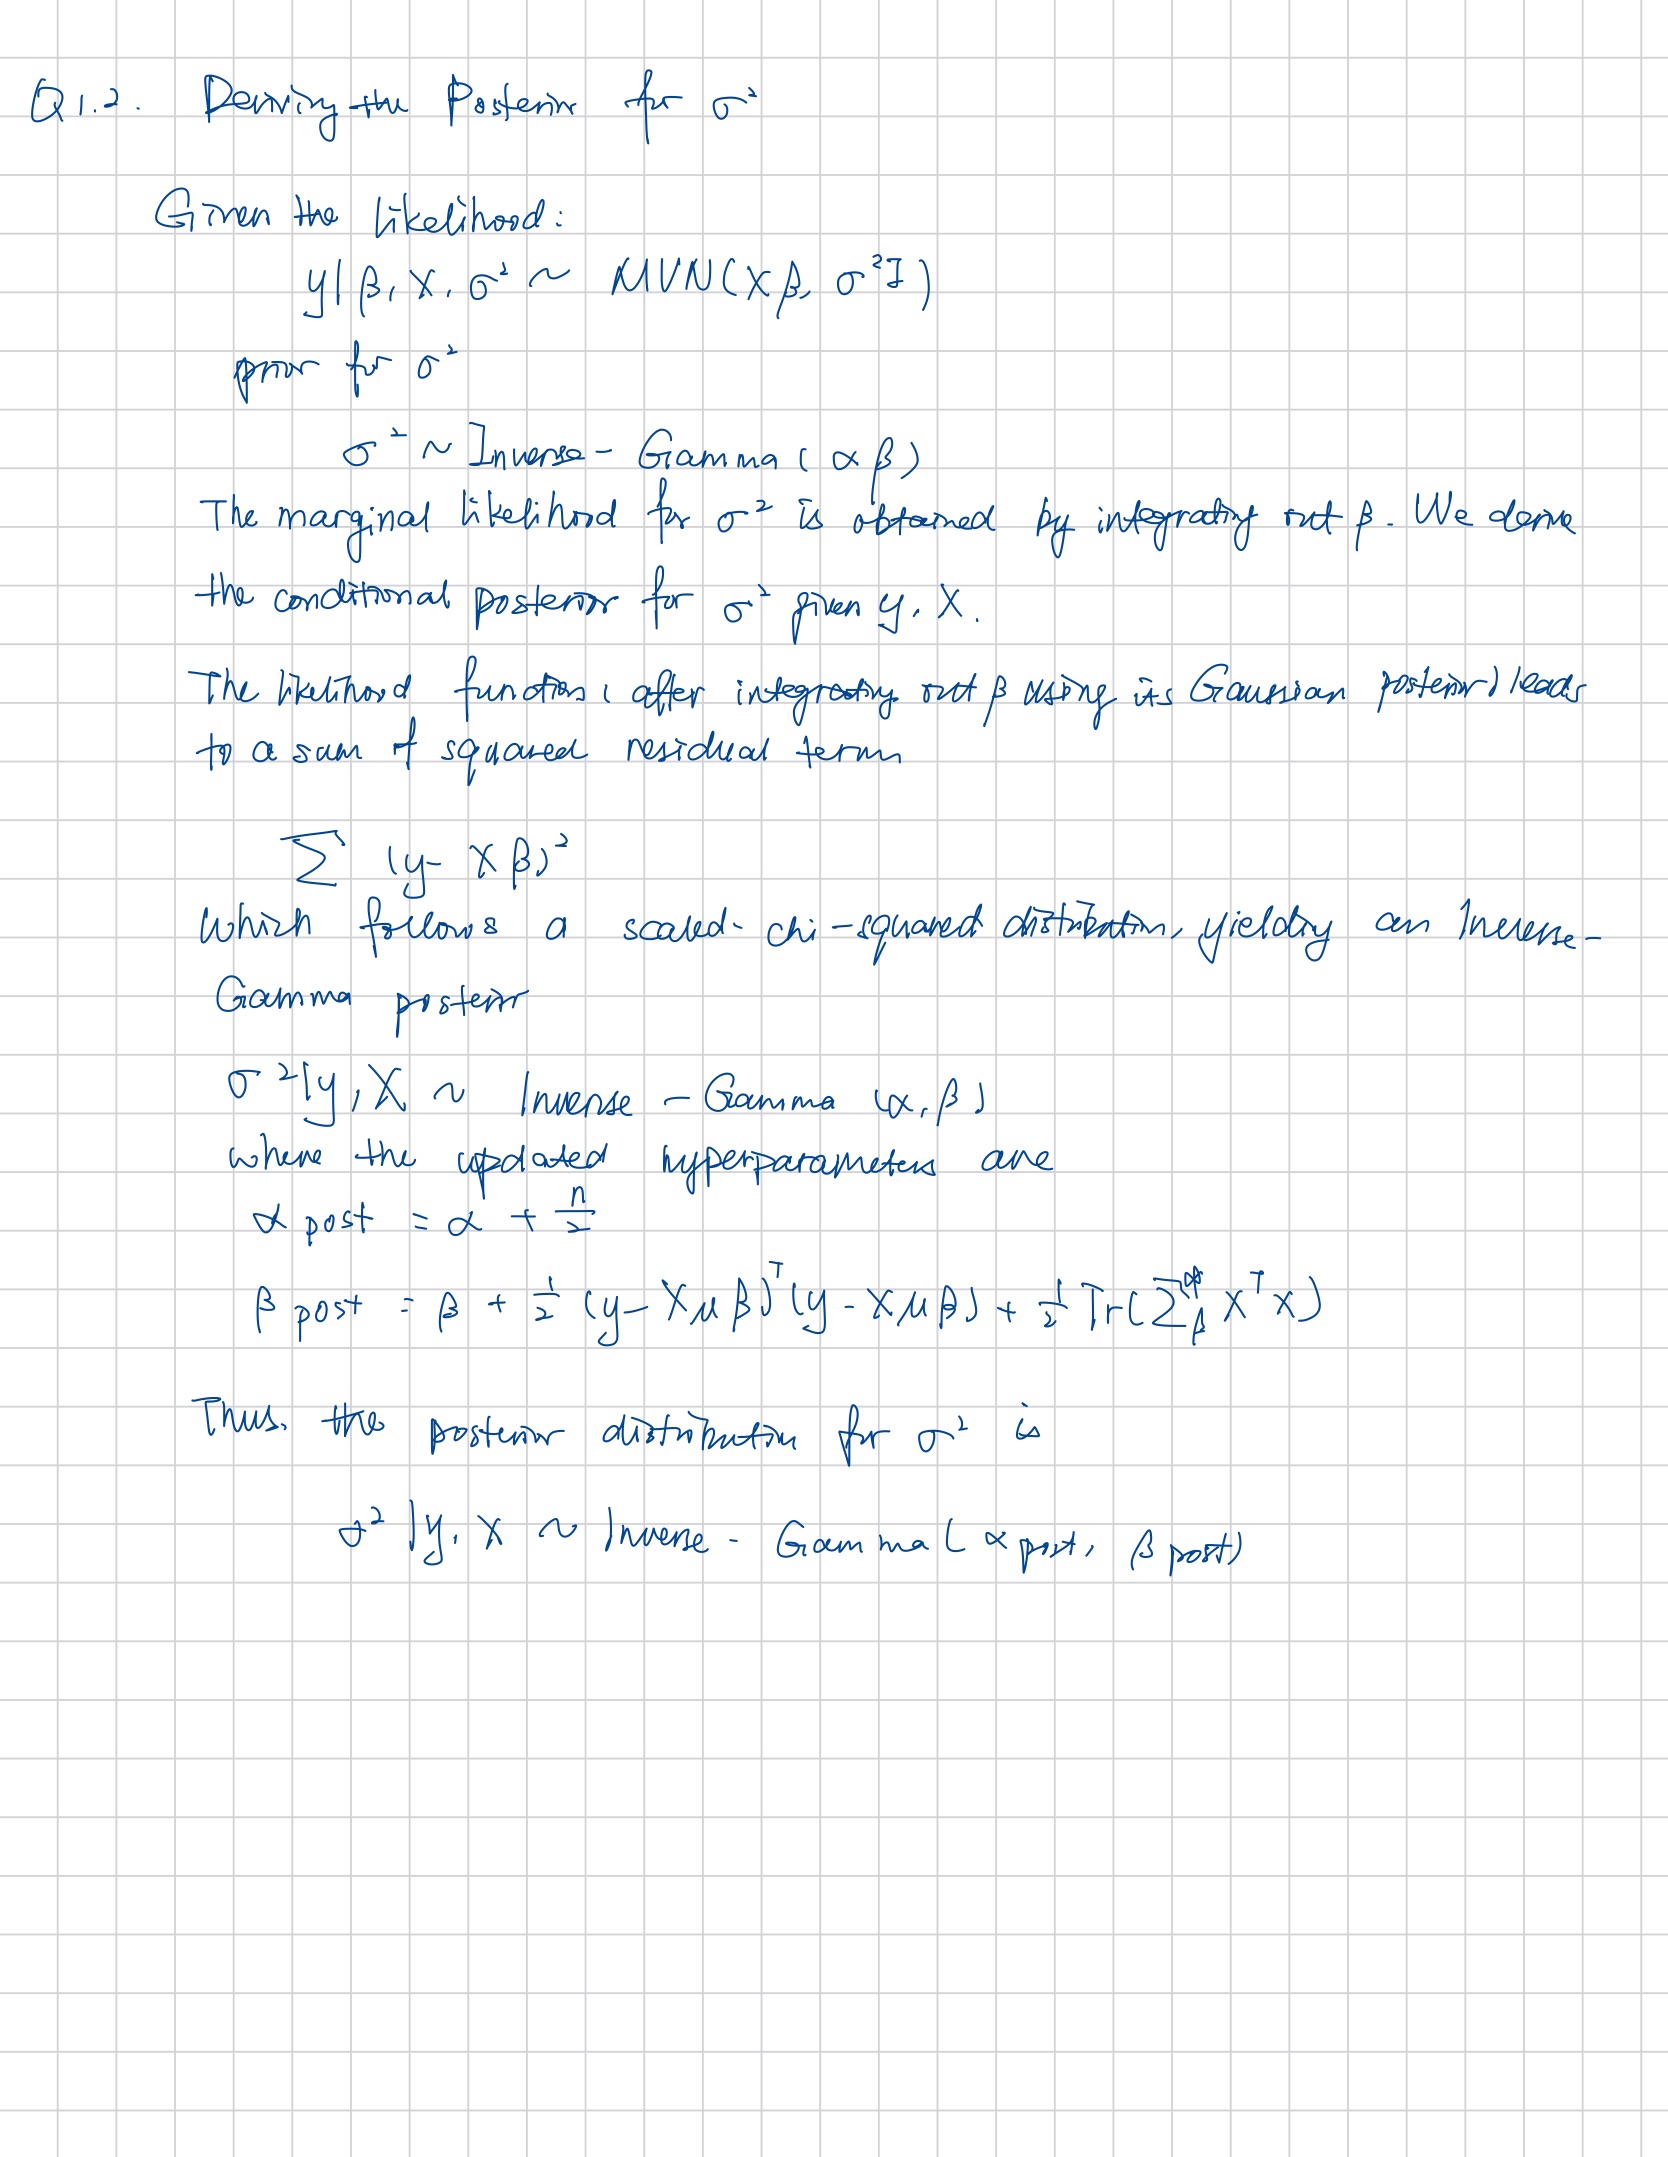 Q1.2. Deriving the Posterior for σ²
Given the likelihood:
y|β, X, σ² ~ MVN(Xβ, σ²I)
prior for σ²
σ² ~ Inverse-Gamma(α β)
The marginal likelihood for σ² is obtained by integrating out β. We derive
the conditional posterior for σ² given y, X.
The likelihood function (after integrating out β using its Gaussian posterior) leads
to a sum of squared residual term
∑ (y- Xβ)²
which follows a scaled-chi-squared distribution, yielding an Inverse-
Gamma posterior
σ²|y, X ~ Inverse-Gamma (α, β)
where the updated hyperparameters are
α post = α + n/2
β post = β + 1/2 (y-Xμβ)ᵀ(y-Xμβ) + 1/2 Tr(Σ*β XᵀX)
Thus, the posterior distribution for σ² is
σ²|y, X ~ Inverse-Gamma(α post, β post)